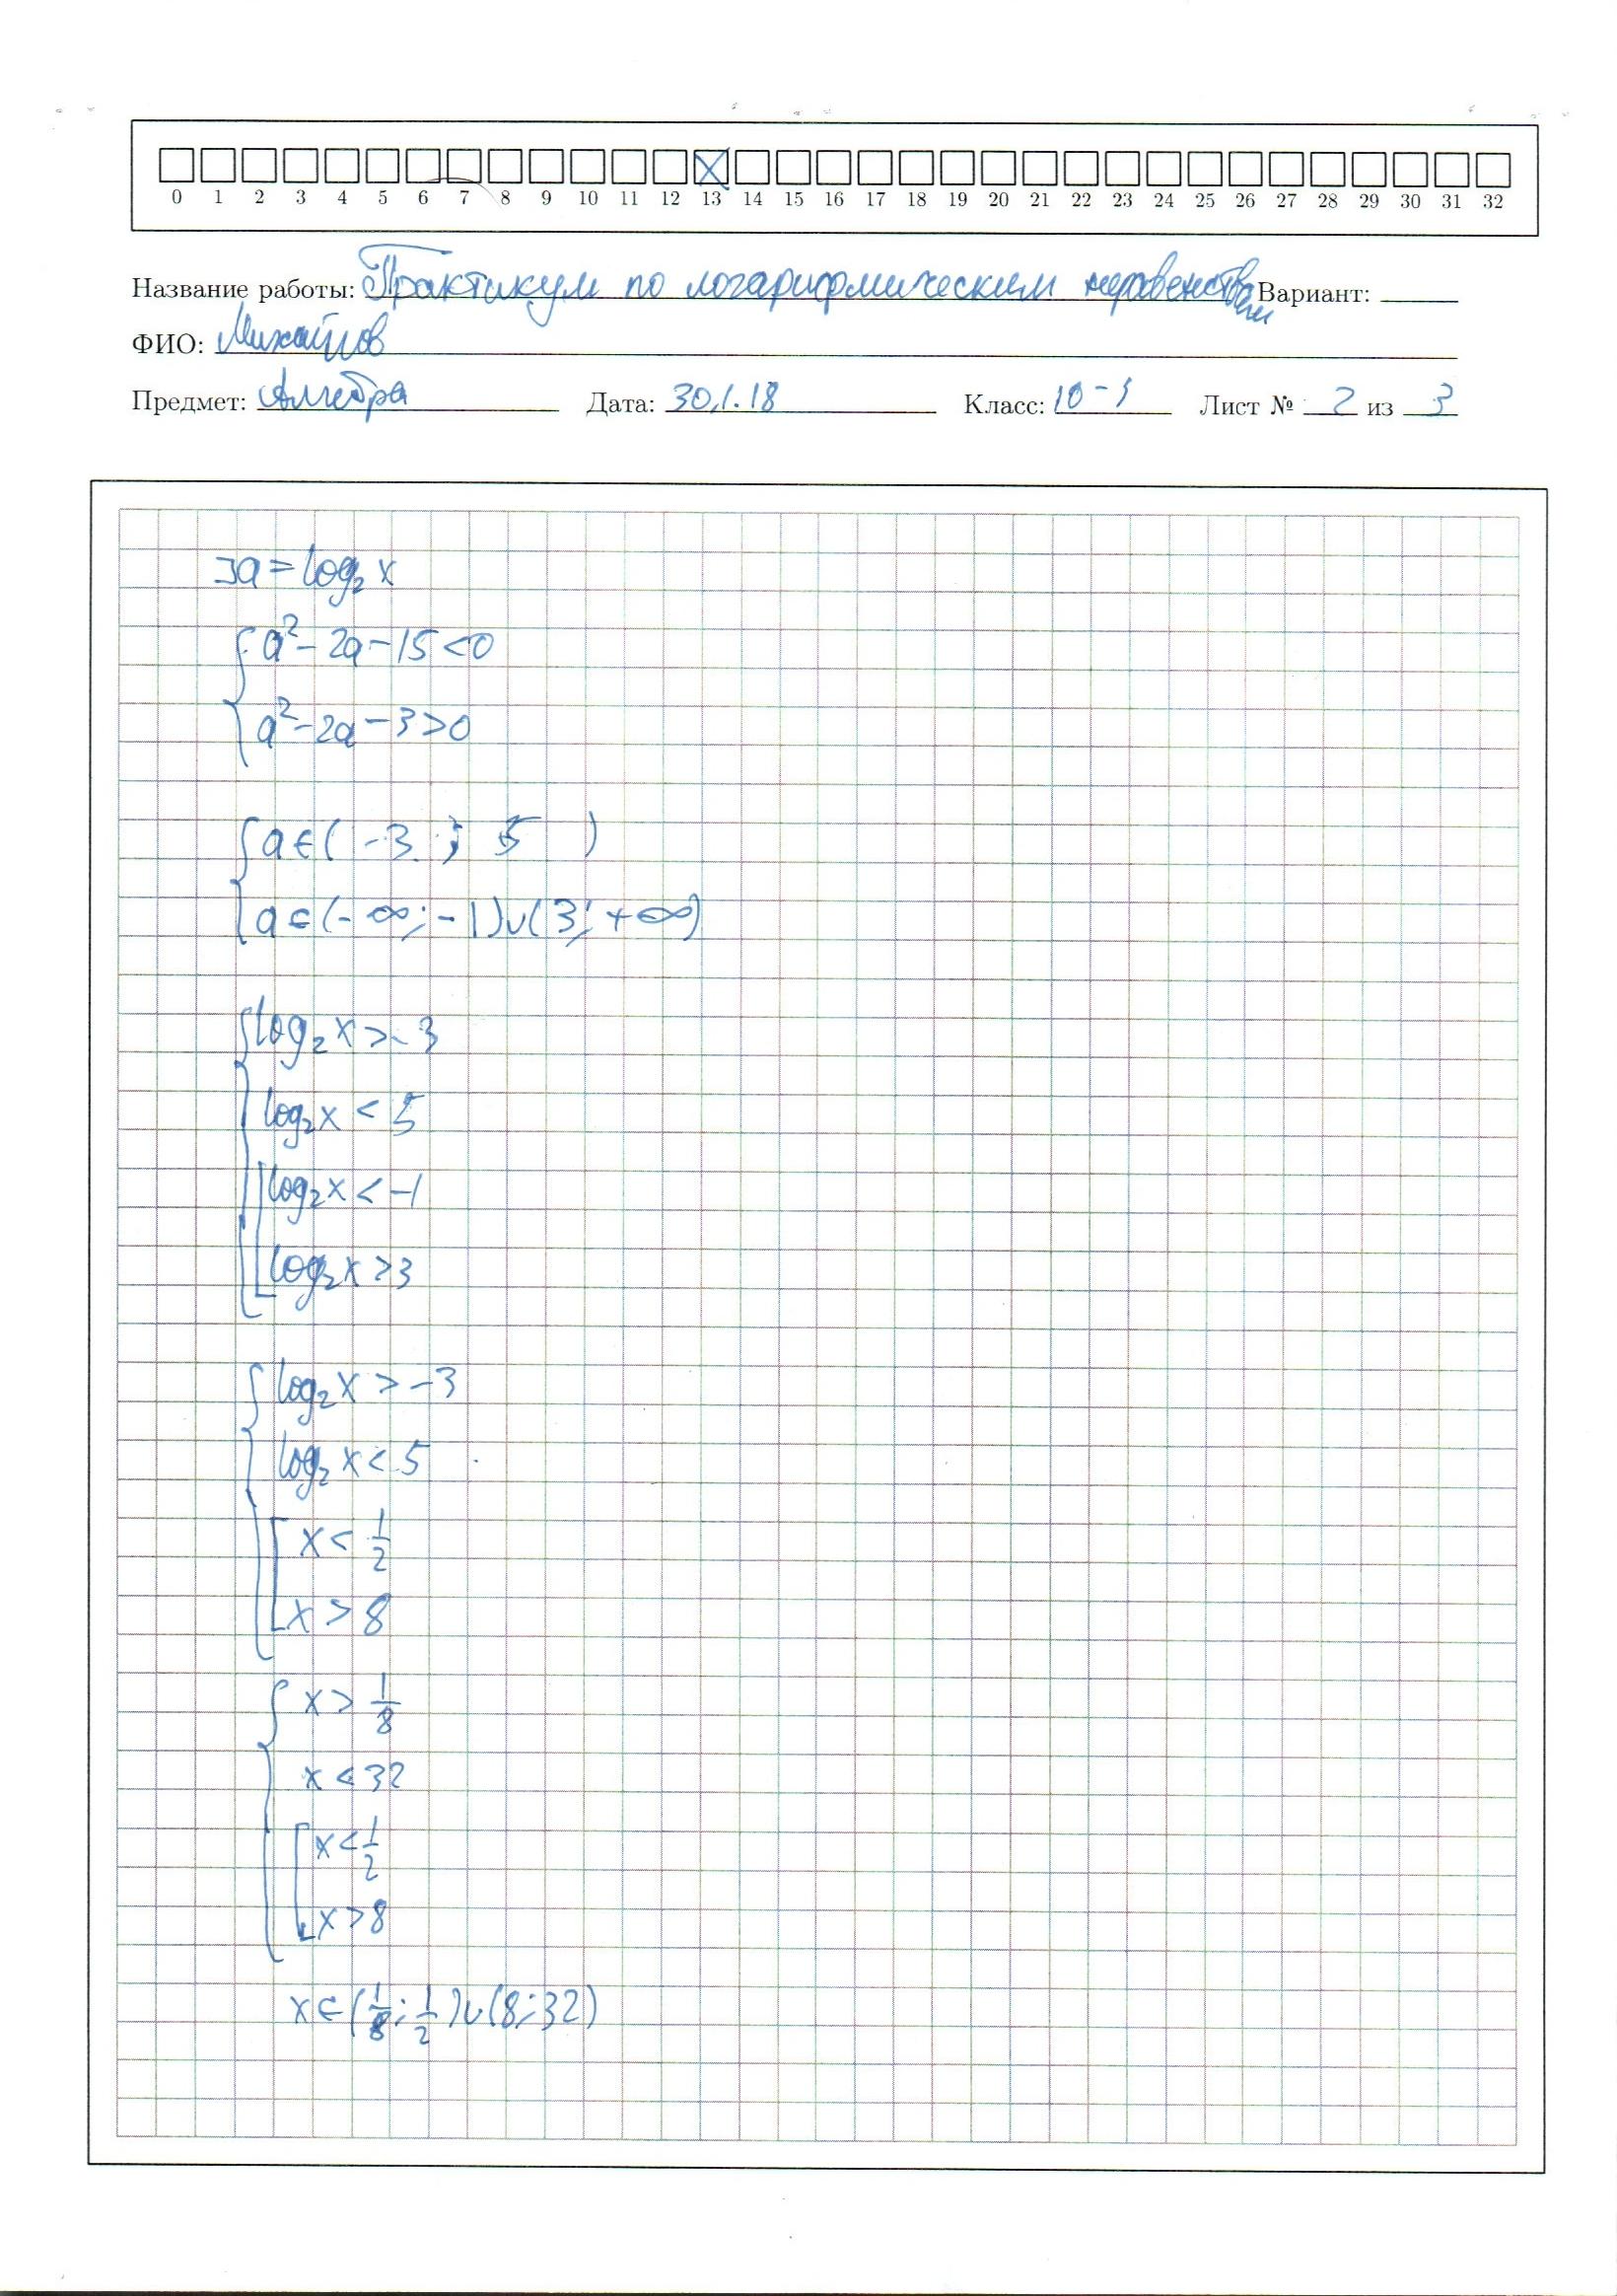 0 1 2 3 4 5 6 7 8 9 10 11 12 13 14 15 16 17 18 19 20 21 22 23 24 25 26 27 28 29 30 31 32
Название работы: Практикум по логарифмическим неравенствам Вариант:
ФИО: Михайлов
Предмет: Алгебра Дата: 30.1.18 Класс: 10-1 Лист № 2 из 3
∃a = log₂ x
{ a² - 2a - 15 < 0
a² - 2a - 3 > 0
{ a ∈ ( -3 ; 5 )
a ∈ (-∞; -1) ∪ (3; +∞)
{ log₂ x > -3
log₂ x < 5
[ log₂ x < -1
log₂ x > 3
{ log₂ x > -3
log₂ x < 5
[ x < 1/2
x > 8
{ x > 1/8
x < 32
[ x < 1/2
x > 8
x ∈ (1/8; 1/2) ∪ (8; 32)